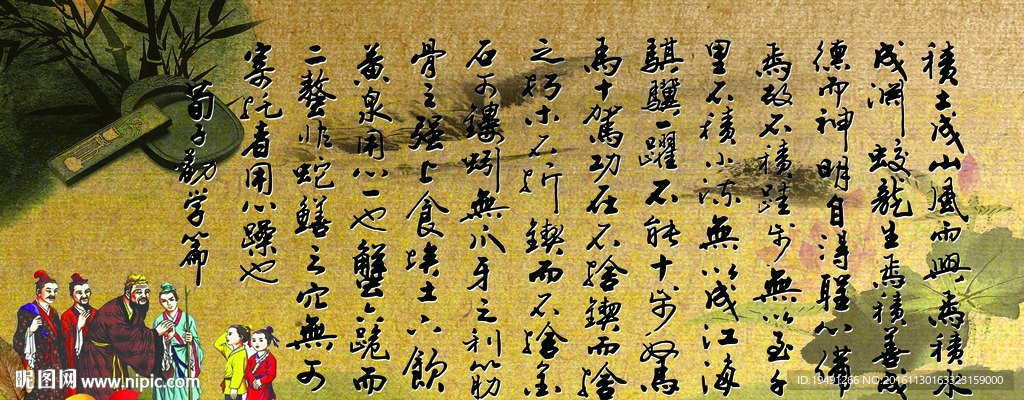 積土成山風雨興焉積水
成淵蛟龍生焉積善成
德而神明自得聖心備
焉故不積跬步無以至千
里不積小流無以成江海
騏驥一躍不能十步駑馬
馬十駕功在不捨鍥而捨
之朽木不折鍥而不捨金
石可鏤蚓無爪牙之利筋
骨之强上食埃土下飲
黃泉用心一也蟹六跪而
二螯非蛇鱔之穴無可
寄託者用心躁也
荀子勸學篇
昵图网 www.nipic.com
ID:19491266 NO:20161130163323159000